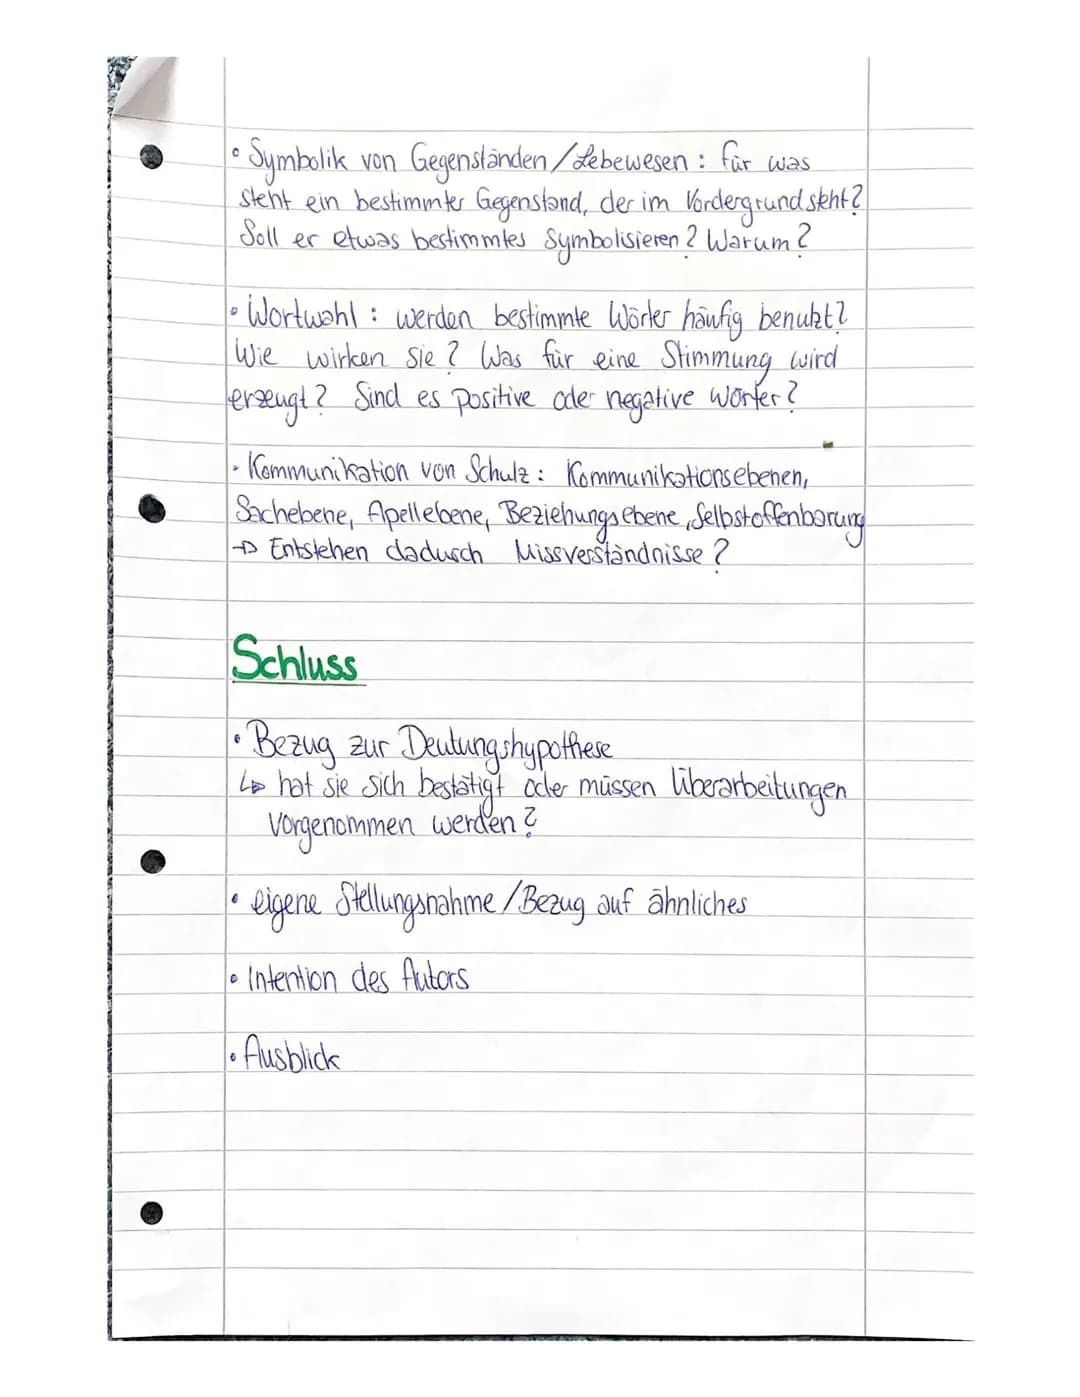 • Symbolik von Gegenständen/Lebewesen: für was
steht ein bestimmter Gegenstand, der im Vordergrund steht?
Soll er etwas bestimmtes Symbolisieren? Warum?
• Wortwahl: werden bestimmte Wörter häufig benutzt?
Wie wirken sie? Was für eine Stimmung wird
erzeugt? Sind es positive oder negative Wörter?
• Kommunikation von Schulz: Kommunikationsebenen,
Sachebene, Apellebene, Beziehungsebene, Selbstoffenbarung
→ Entstehen dadurch Missverständnisse?
Schluss
• Bezug zur Deutungshypothese
↳ hat sie sich bestätigt oder müssen Überarbeitungen
Vorgenommen werden?
• eigene Stellungsnahme/Bezug auf ähnliches
• Intention des Autors
• Ausblick